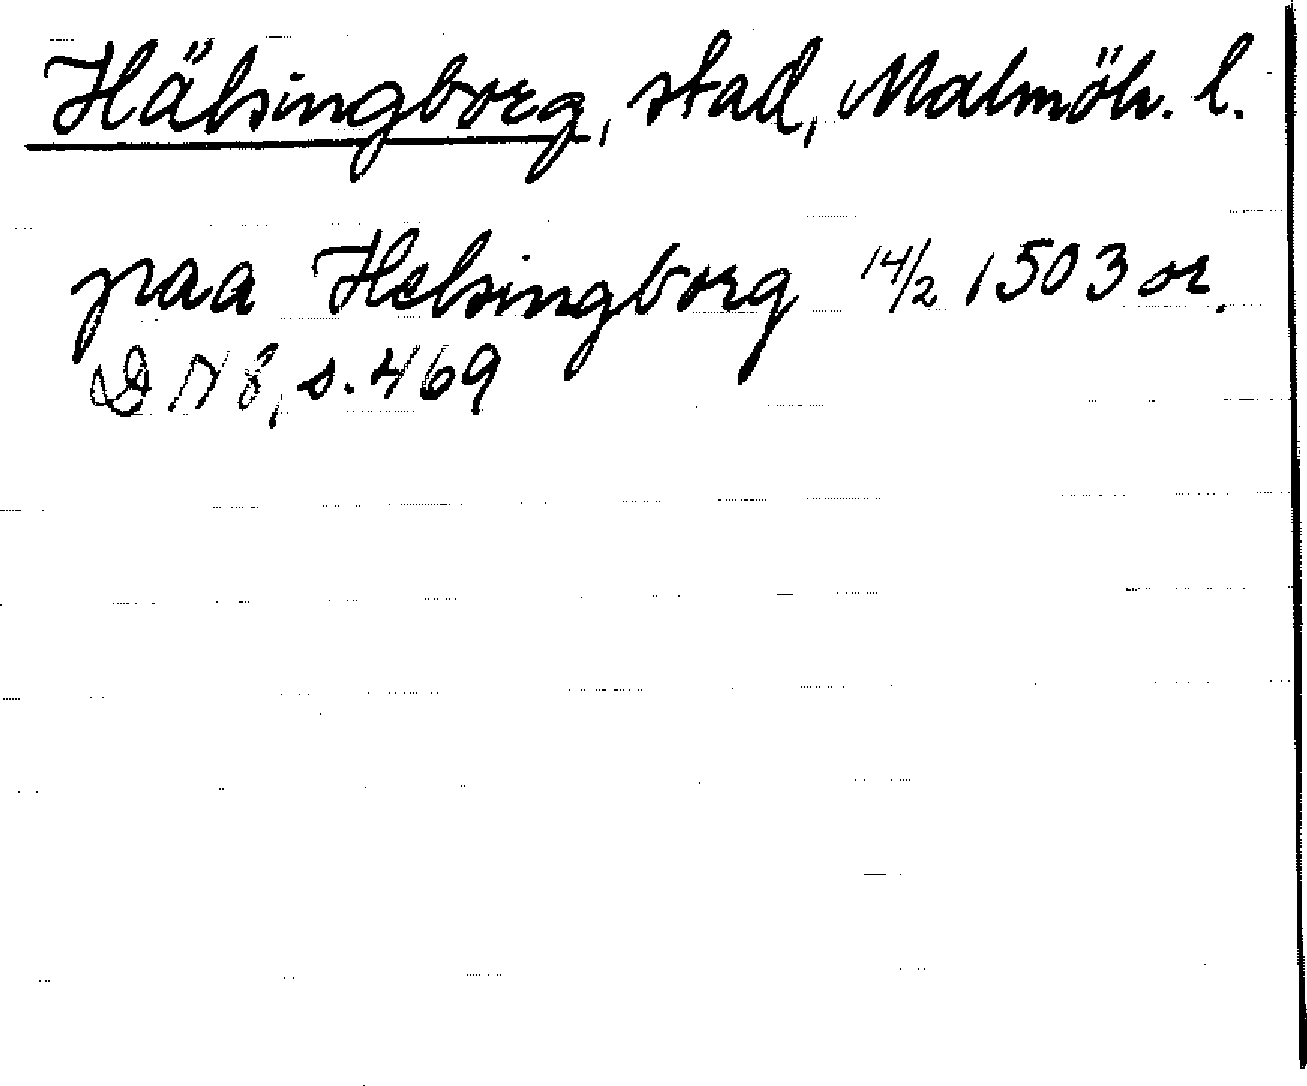 Hälsingborg, stad, Malmöh. l.
paa Helsingborg 14/2 1503 or.
DN 8, s. 469